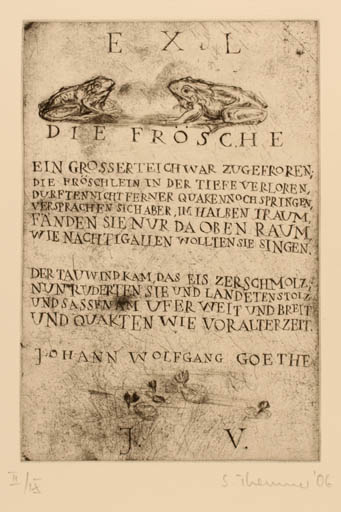 E X . L
DIE FRÖSCHE
EIN GROSSER TEICH WAR ZUGEFROREN;
DIE FRÖSCHLEIN IN DER TIEFE VERLOREN,
DURFTEN NICHT FERNER QUAKEN NOCH SPRINGEN,
VERSPRACHEN SICH ABER, IM HALBEN TRAUM,
FÄNDEN SIE NUR DA OBEN RAUM,
WIE NACHTIGALLEN WOLLTEN SIE SINGEN.
DER TAUWIND KAM, DAS EIS ZERSCHMOLZ,
NUN RUDERTEN SIE UND LANDETEN STOLZ
UND SASSEN AM UFER WEIT UND BREIT
UND QUAKTEN WIE VOR ALTER ZEIT.
JOHANN WOLFGANG GOETHE
J. V.
II/IX '06